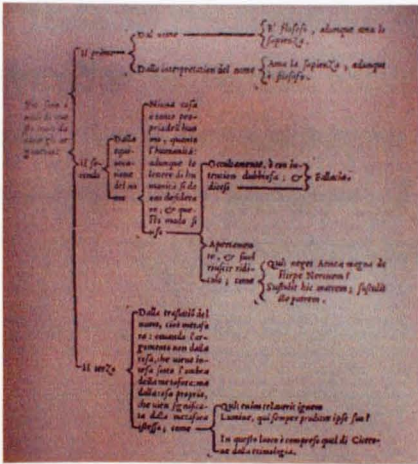 Il primo
Dal nome
E' filosofo, adunque ama la
sapienza.
Dalla interpretation del nome
Ama la sapienza, adunque
è filosofo.
Il se-
condo
Dalla
equi-
del no
me
Niuna cosa
è tanto pro
pria dell'huo
mo, quanto
l'humanità:
adunque le
lettere di hu
manità si de
ono desidera
re, & que-
sto modo si
usa
Occultamente, & con in-
tention dubbiosa; &
dicesi
Fallacia.
Apertamen
te, & suol
riuscir ridi-
cula; come
Quis neget Aeneae magna de
stirpe Neronem?
Sustulit hic matrem; sustulit
ille patrem.
Il terzo
Dalla traslatiō del
nome, cioè metafo
ra: quando l'ar-
gomento non dalla
cosa, che viene in-
tesa sotto l'ombra
della metafora: ma
dalla cosa propria,
che vien significa-
ta dalla metafora
istessa; come
Quis enim celaverit ignem
Lumine, qui semper proditur ipse suo?
In questo luoco è compreso quel di Cicero-
ne dalla etimologia.